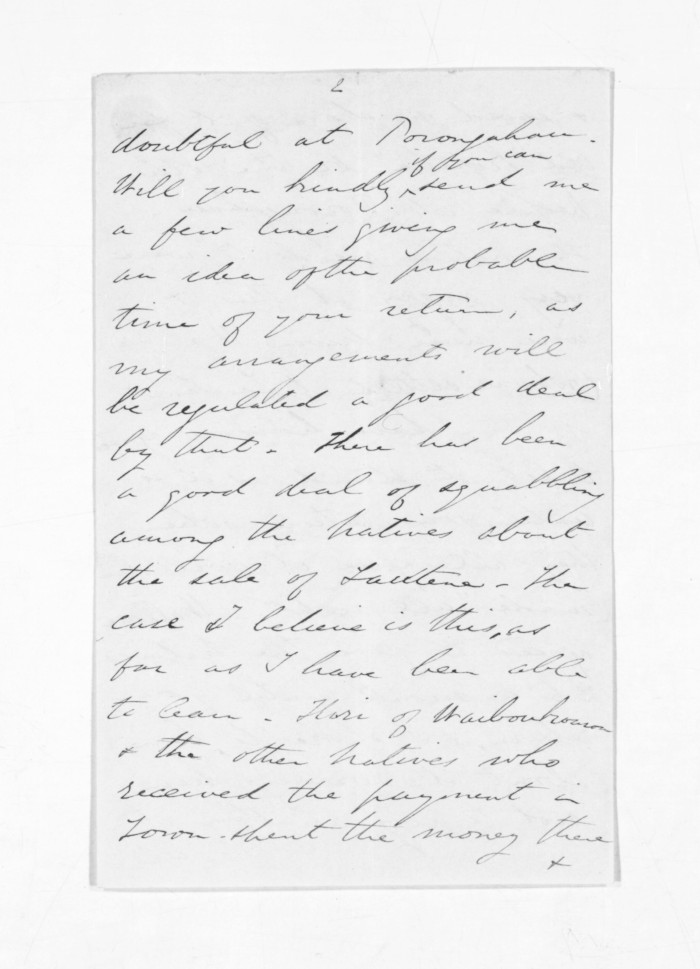 2
doubtful at Porongahau.
if you can
Will you kindly ^ send me
a few lines giving me
an idea of the probable
time of your return, as
my arrangements will
be regulated a good deal
by that. There has been
a good deal of squabbling
among the Natives about
the sale of - The
case I believe is this, as
far as I have been able
to lean - Hori of
& the other Natives who
received the payment in
Town - spent the money there
&